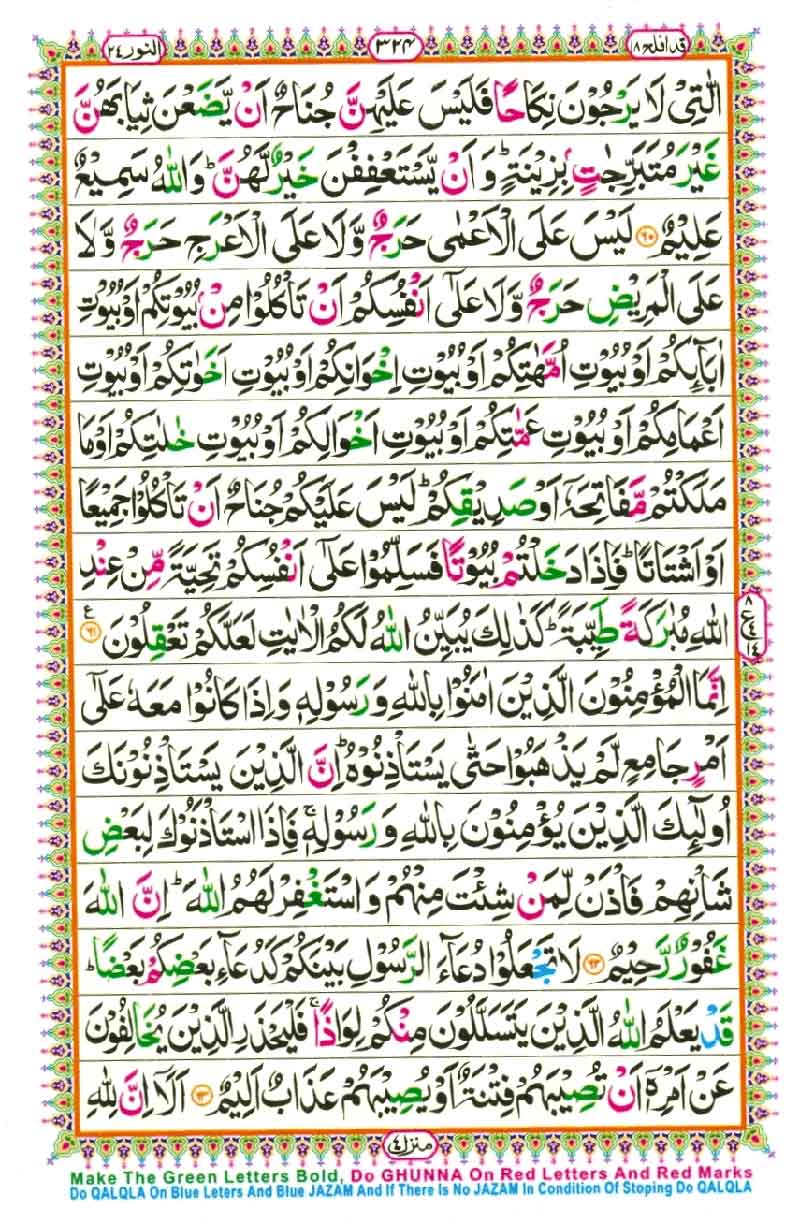 قد افلح ۸
۳۲۴
النور ۲۴
الّٰتِیْ لَا یَرْجُوْنَ نِكَاحًا فَلَیْسَ عَلَیْهِنَّ جُنَاحٌ اَنْ یَّضَعْنَ ثِیَابَهُنَّ
غَیْرَ مُتَبَرِّجٰتٍۭ بِزِیْنَةٍ ؕ وَ اَنْ یَّسْتَعْفِفْنَ خَیْرٌ لَّهُنَّ ؕ وَ اللّٰهُ سَمِیْعٌ
عَلِیْمٌ ﴿۶۰﴾ لَیْسَ عَلَى الْاَعْمٰى حَرَجٌ وَّ لَا عَلَى الْاَعْرَجِ حَرَجٌ وَّ لَا
عَلَى الْمَرِیْضِ حَرَجٌ وَّ لَا عَلٰۤى اَنْفُسِكُمْ اَنْ تَاْكُلُوْا مِنْۢ بُیُوْتِكُمْ اَوْ بُیُوْتِ
اٰبَآىِٕكُمْ اَوْ بُیُوْتِ اُمَّهٰتِكُمْ اَوْ بُیُوْتِ اِخْوَانِكُمْ اَوْ بُیُوْتِ اَخَوٰتِكُمْ اَوْ بُیُوْتِ
اَعْمَامِكُمْ اَوْ بُیُوْتِ عَمّٰتِكُمْ اَوْ بُیُوْتِ اَخْوَالِكُمْ اَوْ بُیُوْتِ خٰلٰتِكُمْ اَوْ مَا
مَلَكْتُمْ مَّفَاتِحَهٗۤ اَوْ صَدِیْقِكُمْ ؕ لَیْسَ عَلَیْكُمْ جُنَاحٌ اَنْ تَاْكُلُوْا جَمِیْعًا
اَوْ اَشْتَاتًا ؕ فَاِذَا دَخَلْتُمْ بُیُوْتًا فَسَلِّمُوْا عَلٰۤى اَنْفُسِكُمْ تَحِیَّةً مِّنْ عِنْدِ
اللّٰهِ مُبٰرَكَةً طَیِّبَةً ؕ كَذٰلِكَ یُبَیِّنُ اللّٰهُ لَكُمُ الْاٰیٰتِ لَعَلَّكُمْ تَعْقِلُوْنَ ﴿۶۱﴾ ع
اِنَّمَا الْمُؤْمِنُوْنَ الَّذِیْنَ اٰمَنُوْا بِاللّٰهِ وَ رَسُوْلِهٖ وَ اِذَا كَانُوْا مَعَهٗ عَلٰۤى
اَمْرٍ جَامِعٍ لَّمْ یَذْهَبُوْا حَتّٰى یَسْتَاْذِنُوْهُ ؕ اِنَّ الَّذِیْنَ یَسْتَاْذِنُوْنَكَ
اُولٰٓىِٕكَ الَّذِیْنَ یُؤْمِنُوْنَ بِاللّٰهِ وَ رَسُوْلِهٖ ۚ فَاِذَا اسْتَاْذَنُوْكَ لِبَعْضِ
شَاْنِهِمْ فَاْذَنْ لِّمَنْ شِئْتَ مِنْهُمْ وَ اسْتَغْفِرْ لَهُمُ اللّٰهَ ؕ اِنَّ اللّٰهَ
غَفُوْرٌ رَّحِیْمٌ ﴿۶۲﴾ لَا تَجْعَلُوْا دُعَآءَ الرَّسُوْلِ بَیْنَكُمْ كَدُعَآءِ بَعْضِكُمْ بَعْضًا ؕ
قَدْ یَعْلَمُ اللّٰهُ الَّذِیْنَ یَتَسَلَّلُوْنَ مِنْكُمْ لِوَاذًا ۚ فَلْیَحْذَرِ الَّذِیْنَ یُخَالِفُوْنَ
عَنْ اَمْرِهٖۤ اَنْ تُصِیْبَهُمْ فِتْنَةٌ اَوْ یُصِیْبَهُمْ عَذَابٌ اَلِیْمٌ ﴿۶۳﴾ اَلَاۤ اِنَّ لِلّٰهِ
منزل ۴
Make The Green Letters Bold, Do GHUNNA On Red Letters And Red Marks
Do QALQLA On Blue Leters And Blue JAZAM And If There Is No JAZAM In Condition Of Stoping Do QALQLA